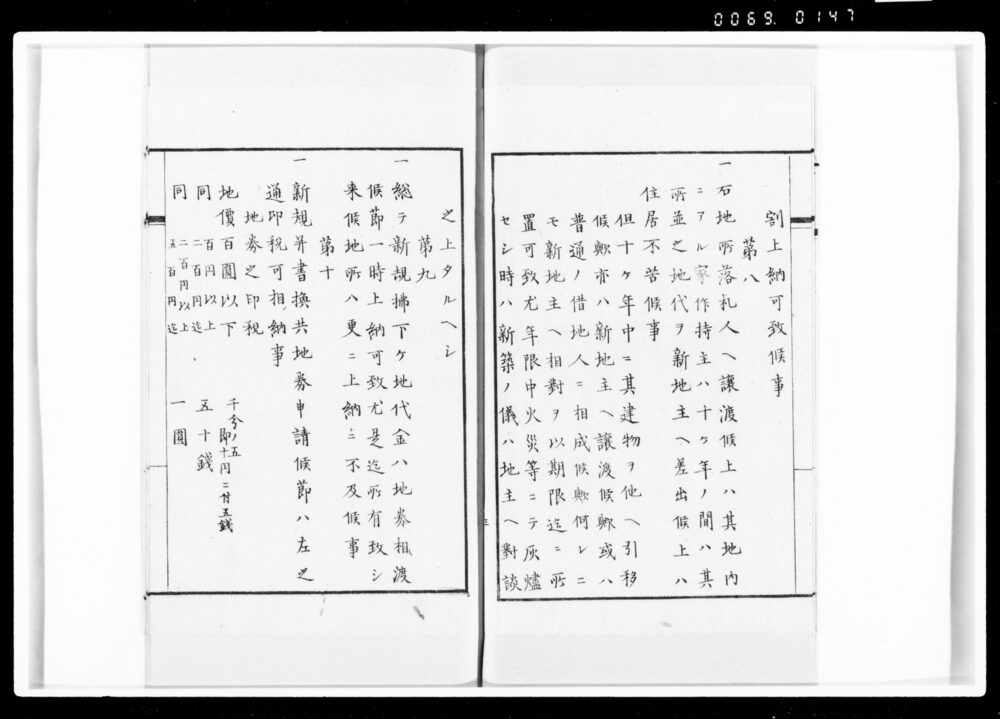 0069. 0147
割上納可致候事
第八
一 右地所落札人ヘ譲渡候上ハ其地内
ニアル家作持主ハ十ケ年ノ間ハ其
所並之地代ヲ新地主ヘ差出候上ハ
住居不苦候事
但十ケ年中ニ其建物ヲ他ヘ引移
候歟亦ハ新地主ヘ譲渡候歟或ハ
普通ノ借地人ニ相成候歟何レニ
モ新地主ヘ相対ヲ以期限迄ニ所
置可致尤年限中火災等ニテ灰燼
セシ時ハ新築ノ儀ハ地主ヘ對談
之上タルヘシ
第九
一 総テ新規拂下ケ地代金ハ地券相渡
候節一時上納可致尤是迄所有致シ
来候地所ハ更ニ上納ニ不及候事
第十
一 新規并書換共地券申請候節ハ左之
通印税可相納事
地券之印税
地價百圓以下 千分ノ五即十円ニ付五錢
同 百円以上二百円迄 五十錢
同 二百円以上五百円迄 一圓